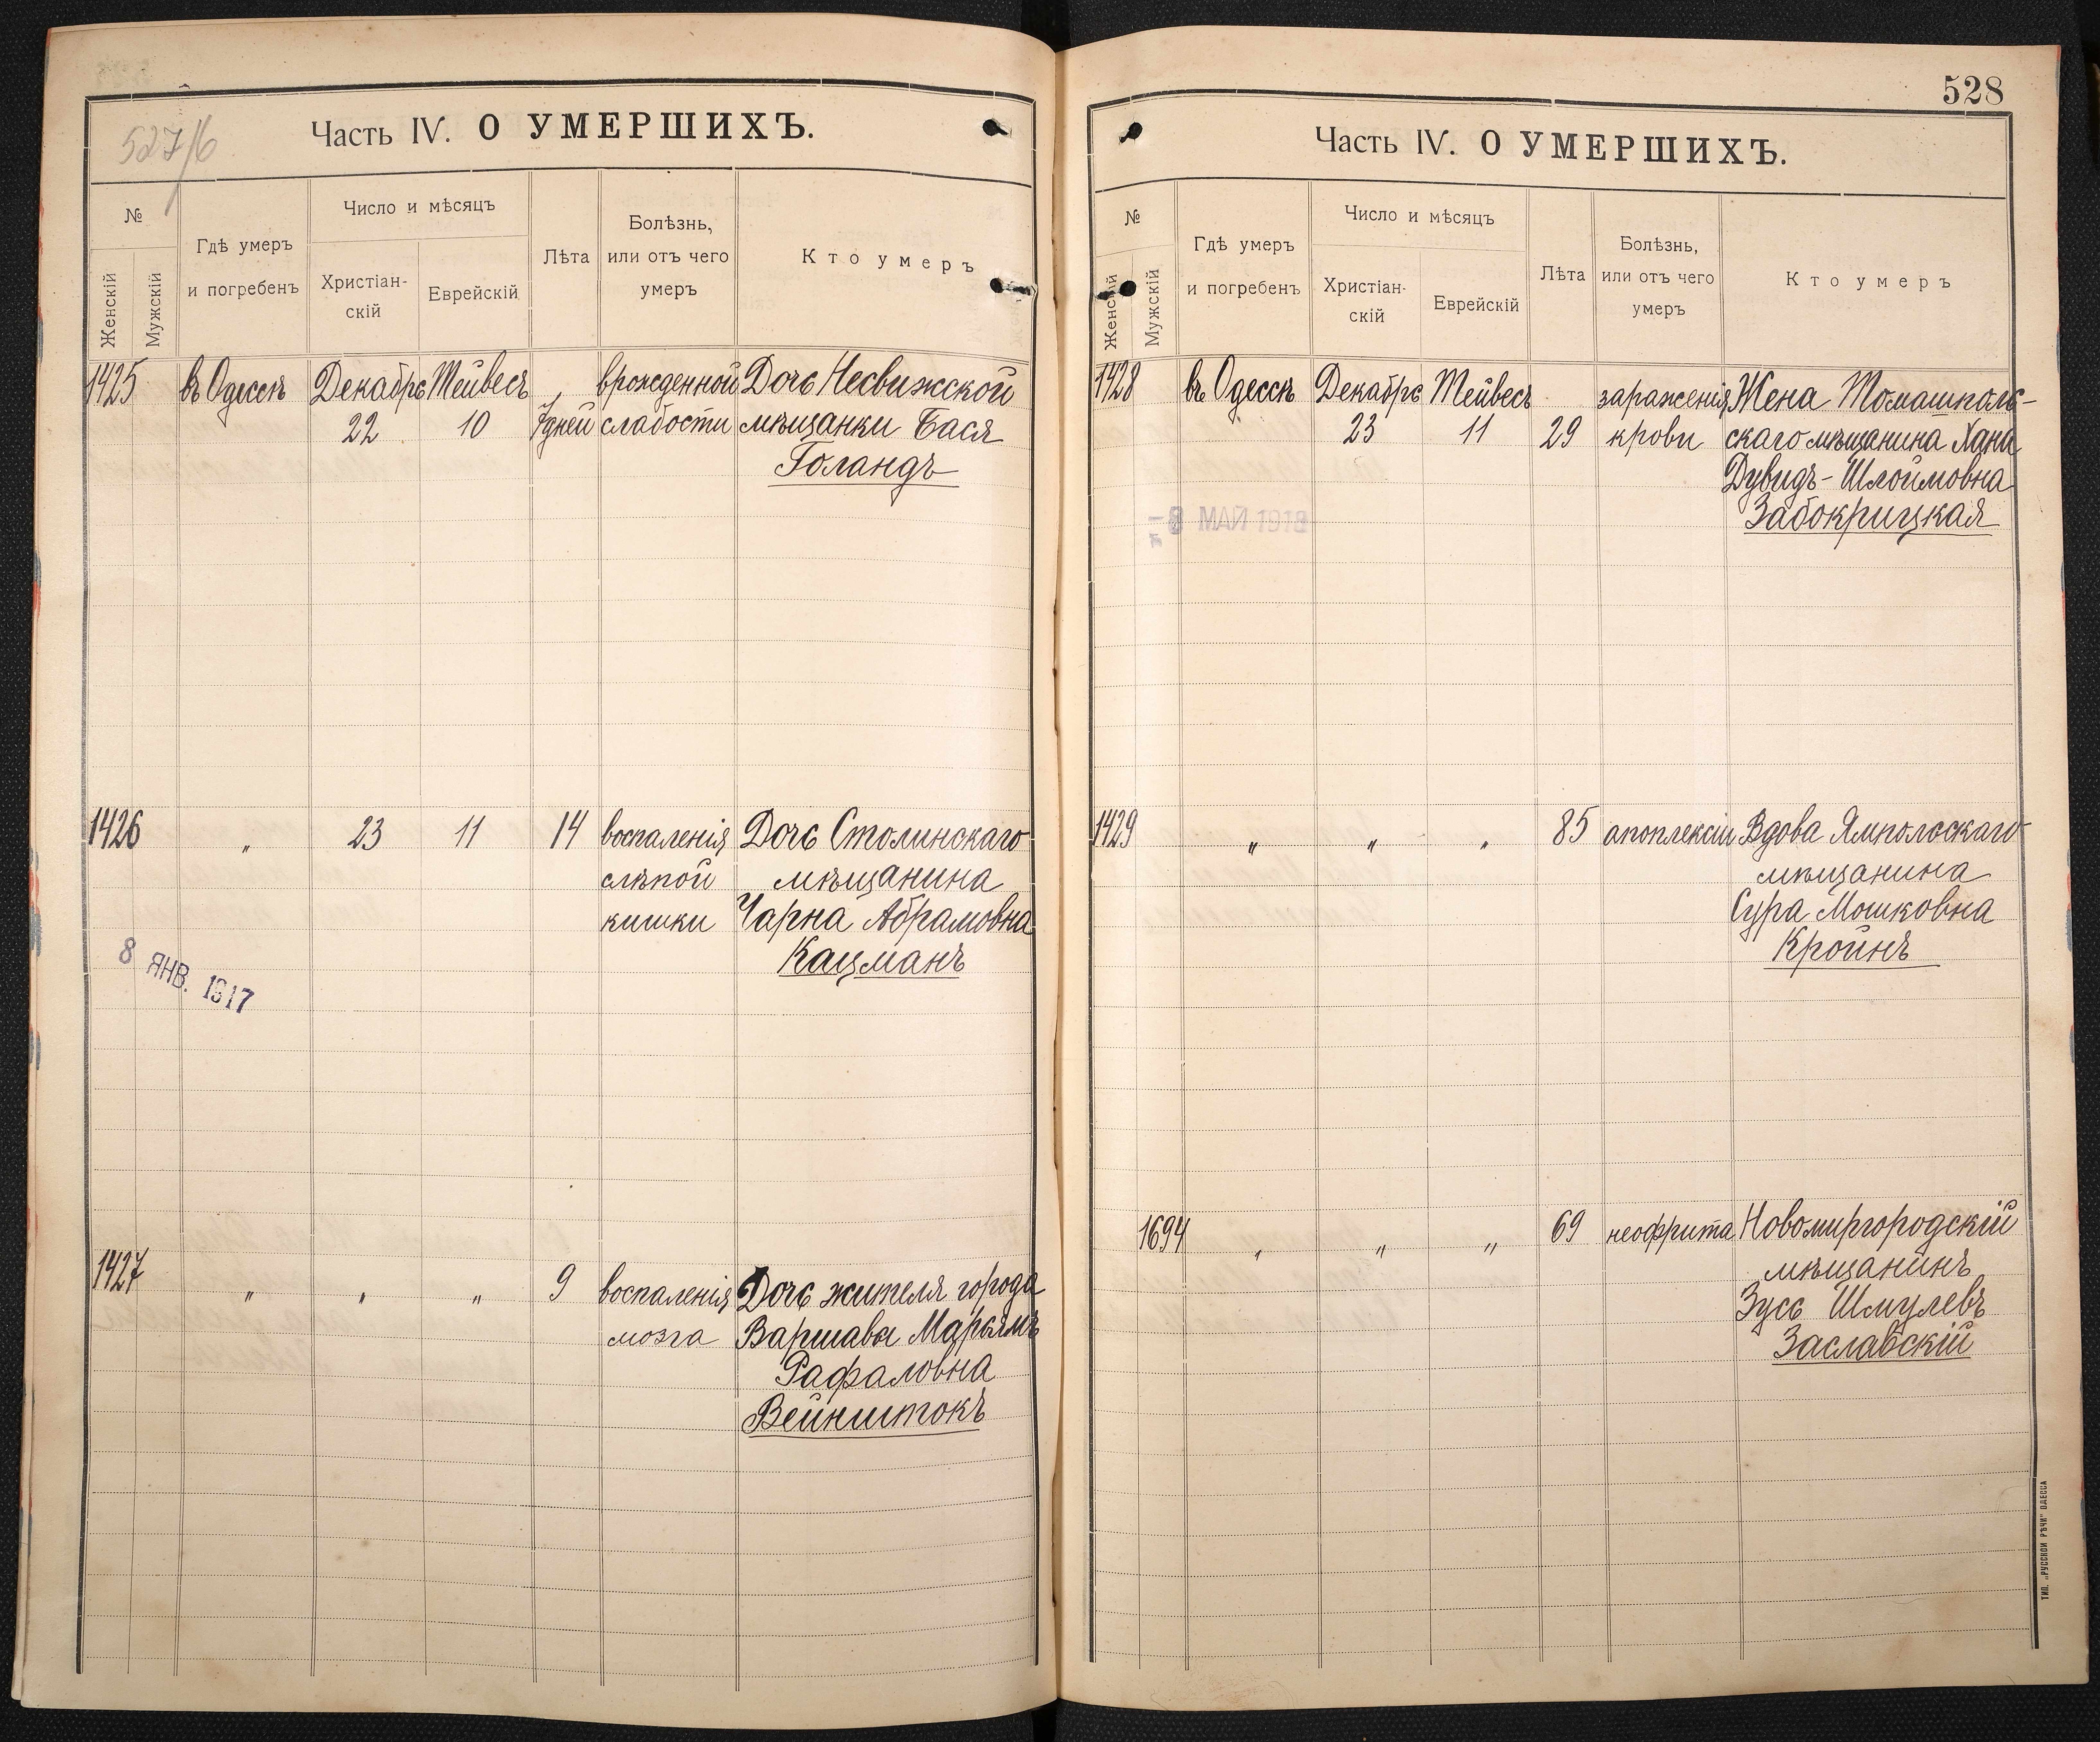 527/б
Часть IV. О УМЕРШИХЪ.
№
Женскій
Мужскій
Гдѣ умеръ
и погребенъ
Число и мѣсяцъ
Христіан-
скій
Еврейскій
Лѣта
Болѣзнь,
или отъ чего
умеръ
Кто умеръ
1425 въ Одессѣ Декабрь Тейвесъ врожденной Дочь Несвижской
22 10 7 дней слабости мѣщанки Бася
Голандъ
1426 " 23 11 14 воспаленія Дочь Столинскаго
слѣпой мѣщанина
кишки Чарна Абрамовна
Кацманъ
8 ЯНВ. 1917
1427 " " " 9 воспаленія Дочь жителя города
мозга Варшавы Марьямъ
Рафаловна
Вейнштокъ
528
Часть IV. О УМЕРШИХЪ.
№
Женскій
Мужскій
Гдѣ умеръ
и погребенъ
Число и мѣсяцъ
Христіан-
скій
Еврейскій
Лѣта
Болѣзнь,
или отъ чего
умеръ
Кто умеръ
1428 въ Одессѣ Декабрь Тейвесъ зараженія Жена Томашполь-
23 11 29 крови скаго мѣщанина Хана
Дувидъ-Шлоймовна
Забокрицкая
-8 МАЙ 1918
1429 " " " 85 апоплексіи Вдова Ямпольскаго
мѣщанина
Сура Мошковна
Кройнъ
1694 " " " 69 неофрита Новомиргородскій
мѣщанинъ
Зусь Шмулевъ
Заславскій
ТИП. „РУССКОЙ РѢЧИ" ОДЕССА